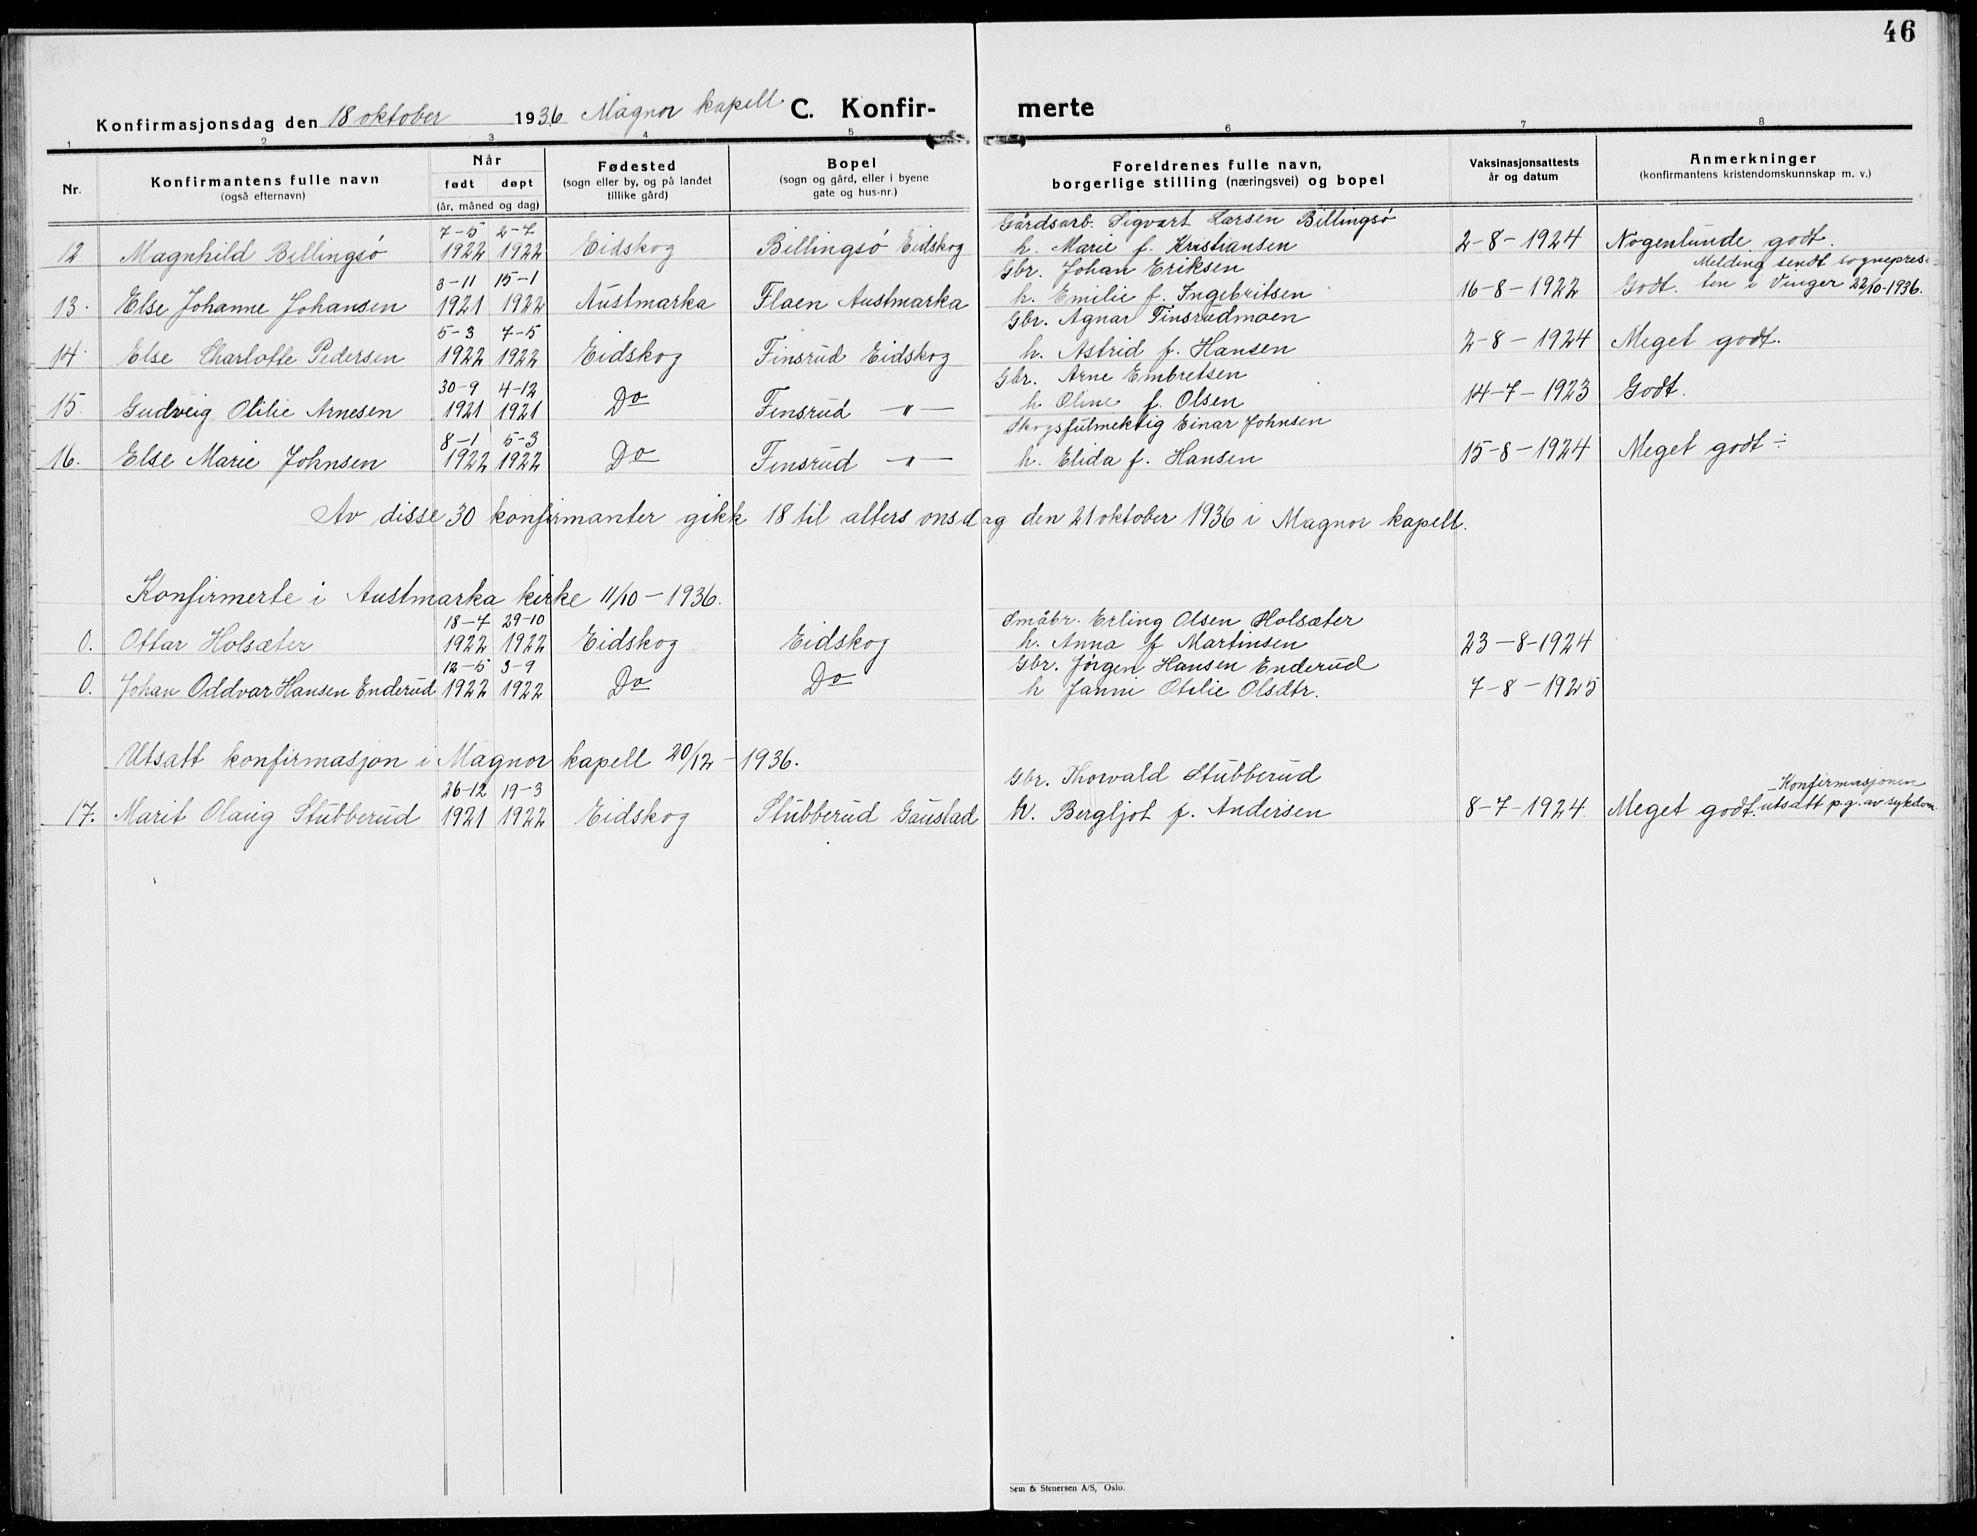 46
Konfirmasjonsdag den 18 oktober 1936 Magnor kapell C. Konfir- merte
1 2 3 4 5 6 7 8
Nr.
Konfirmantens fulle navn
(også efternavn)
Når
født døpt
(år, måned og dag)
Fødested
(sogn eller by, og på landet
tillike gård)
Bopel
(sogn og gård, eller i byene
gate og hus-nr.)
Foreldrenes fulle navn,
borgerlige stilling (næringsvei) og bopel
Vaksinasjonsattests
år og datum
Anmerkninger
(konfirmantens kristendomskunnskap m. v.)
7-5 2-7 Gårdsarb. Sigvart Larsen Billingsø
12 Magnhild Billingsø 1922 1922 Eidskog Billingsø Eidskog h. Marie f. Kristiansen 2-8-1924 Nogenlunde godt.
3-11 15-1 Gbr. Johan Eriksen Melding sendt sognepres-
13. Else Johanne Johansen 1921 1922 Austmarka Flaen Austmarka h. Emilie f. Ingebritsen 16-8-1922 Godt. ten i Vinger 22/10-1936.
5-3 7-5 Gbr. Agnar Finsrudmoen
14. Else Charlotte Pedersen 1922 1922 Eidskog Finsrud Eidskog h. Astrid f. Hansen 2-8-1924 Meget godt.
30-9 4-12 Gbr. Arne Embretsen
15. Gudveig Otilie Arnesen 1921 1921 Do Finsrud -"- h. Oline f. Olsen 14-7-1923 Godt.
8-1 5-3 Skogsfulmektig Einar Johnsen
16. Else Marie Johnsen 1922 1922 Do Finsrud -"- h. Elida f. Hansen 15-8-1924 Meget godt ÷
Av disse 30 konfirmanter gikk 18 til alters onsdag den 21 oktober 1936 i Magnor kapell.
Konfirmerte i Austmarka kirke 11/10-1936.
18-7 29-10 Småbr. Erling Olsen Holsæter
0. Ottar Holsæter 1922 1922 Eidskog Eidskog h. Anna f Martinsen 23-8-1924
12-5 3-9 Gbr. Jørgen Hansen Enderud
0. Johan Oddvar Hansen Enderud 1922 1922 Do Do h Janni Otilie Olsdtr. 7-8-1925
Utsatt konfirmasjon i Magnor kapell 20/12-1936.
26-12 19-3 Gbr. Thorvald Stubberud -Konfirmasjonen
17. Marit Olaug Stubberud 1921 1922 Eidskog Stubberud Gaustad h. Bergljot f. Andersen 8-7-1924. Meget godt. utsatt p.g. av sykdom
Sem & Stenersen A/S, Oslo.